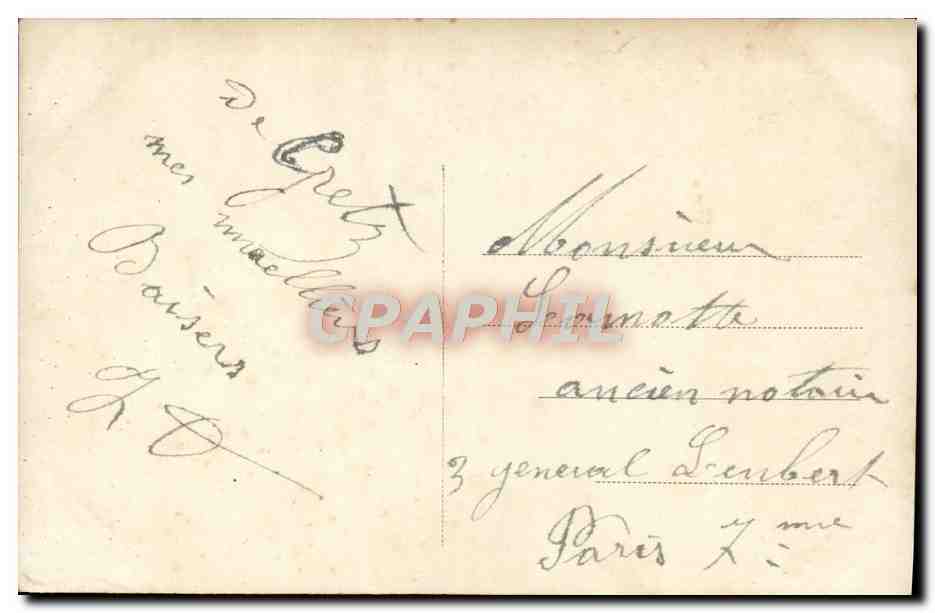 De Gretz
mes meilleurs
Baisers
Monsieur
Lamotte
ancien notaire
3 general Lambert
Paris 7.me
CPAPHIL